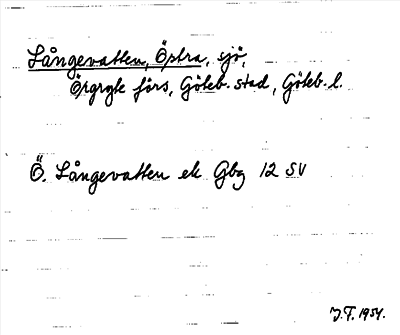 Långevatten, Östra, sjö,
Örgryte förs, Göteb. stad, Göteb. l.
Ö. Långevatten ek Gbg 12 SV
J.F. 1954.